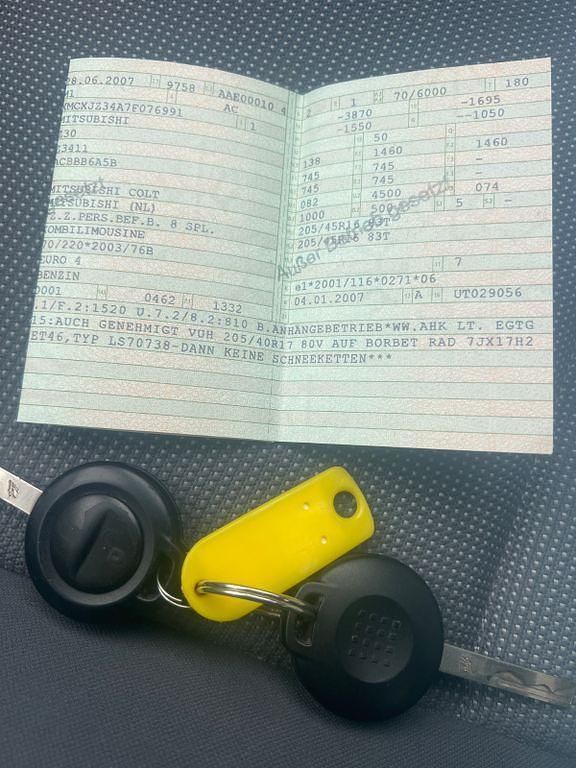 28.06.2007 9758 AAE00010 4
M1 AC
XMCXJZ34A7F076991
MITSUBISHI 1
Z30
Z3411
AC8BB6A5B
MITSUBISHI COLT
MITSUBISHI (NL)
FZ.Z.PERS.BEF.B. 8 SPL.
KOMBILIMOUSINE
70/220*2003/76B
EURO 4
BENZIN
0001 0462 1332
2 1 70/6000 180
-3870 -1695
-1550 --1050
50
138 1460 1460
745 745 -
745 745 -
082 4500 074
1000 500 5 -
205/45R16 83T
205/45R16 83T
Außer Betrieb gesetzt
7
e1*2001/116*0271*06
04.01.2007 A UT029056
.1/F.2:1520 U.7.2/8.2:810 B.ANHÄNGEBETRIEB*WW.AHK LT. EGTG
15:AUCH GENEHMIGT VUH 205/40R17 80V AUF BORBET RAD 7JX17H2
ET46,TYP LS70738-DANN KEINE SCHNEEKETTEN***